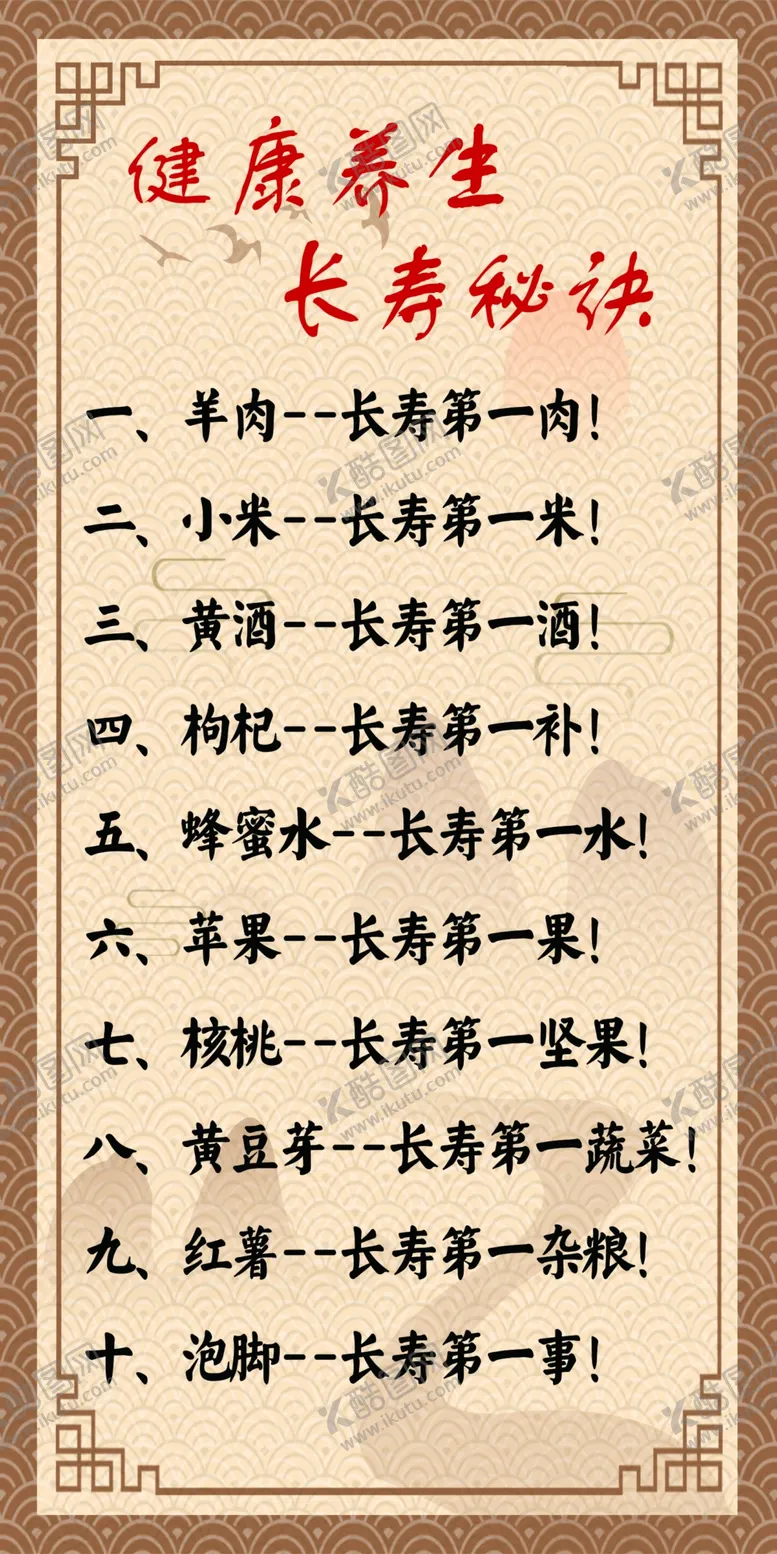 健康养生
长寿秘诀
一、羊肉--长寿第一肉！
二、小米--长寿第一米！
三、黄酒--长寿第一酒！
四、枸杞--长寿第一补！
五、蜂蜜水--长寿第一水！
六、苹果--长寿第一果！
七、核桃--长寿第一坚果！
八、黄豆芽--长寿第一蔬菜！
九、红薯--长寿第一杂粮！
十、泡脚--长寿第一事！
酷图网
www.ikutu.com